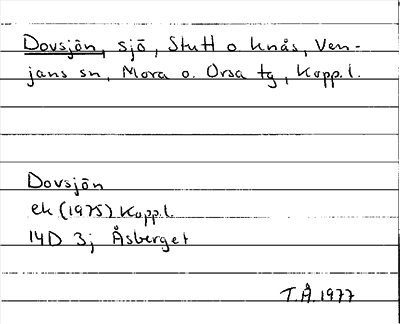 Dovsjön, sjö, Stutt o Knås, Ven-
jans sn, Mora o. Orsa tg, Kopp. l.
Dovsjön
ek (1975) Kopp.l.
14D 3j Åsberget
T.Å. 1977